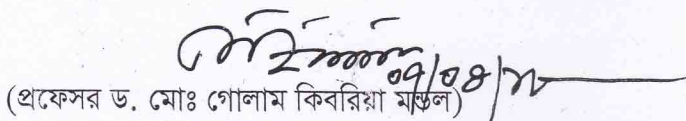 ০৭/০৪/২৮
(প্রফেসর ড. মোঃ গোলাম কিবরিয়া মন্ডল)